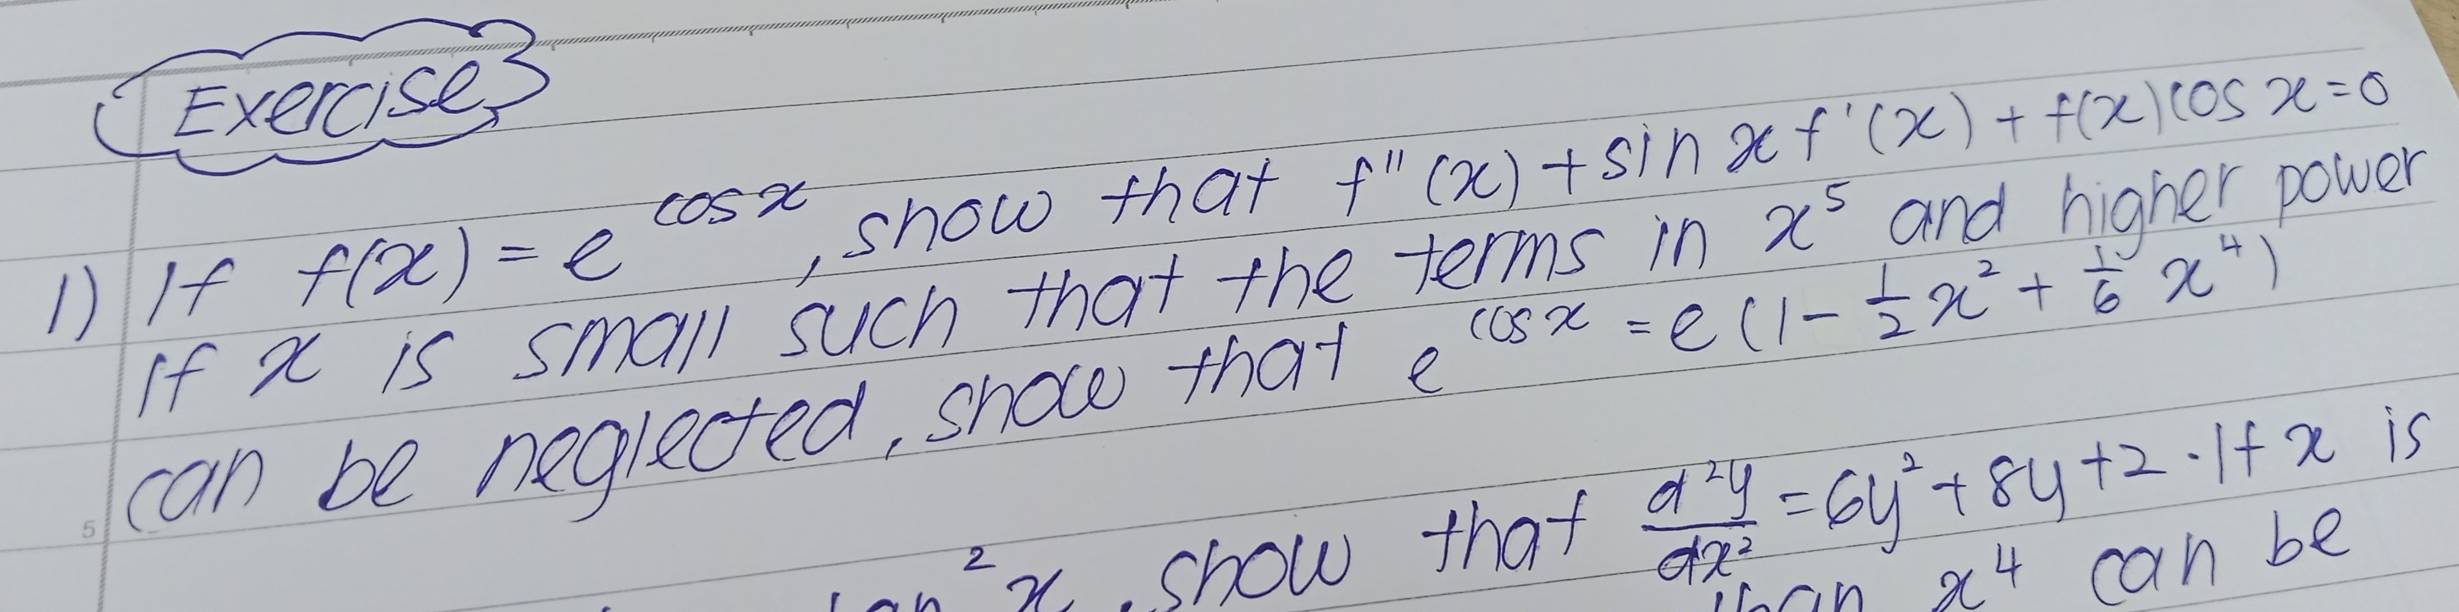 Exercise
1) If f(x) = e^cosx, show that f''(x) + sin x f'(x) + f(x) cos x = 0
If x is small such that the terms in x⁵ and higher power
can be neglected, show that e^cosx = e(1 - 1/2 x² + 1/6 x⁴)
5
² x, show that d²y/dx² = 6y² + 8y + 2 . If x is
x⁴ can be